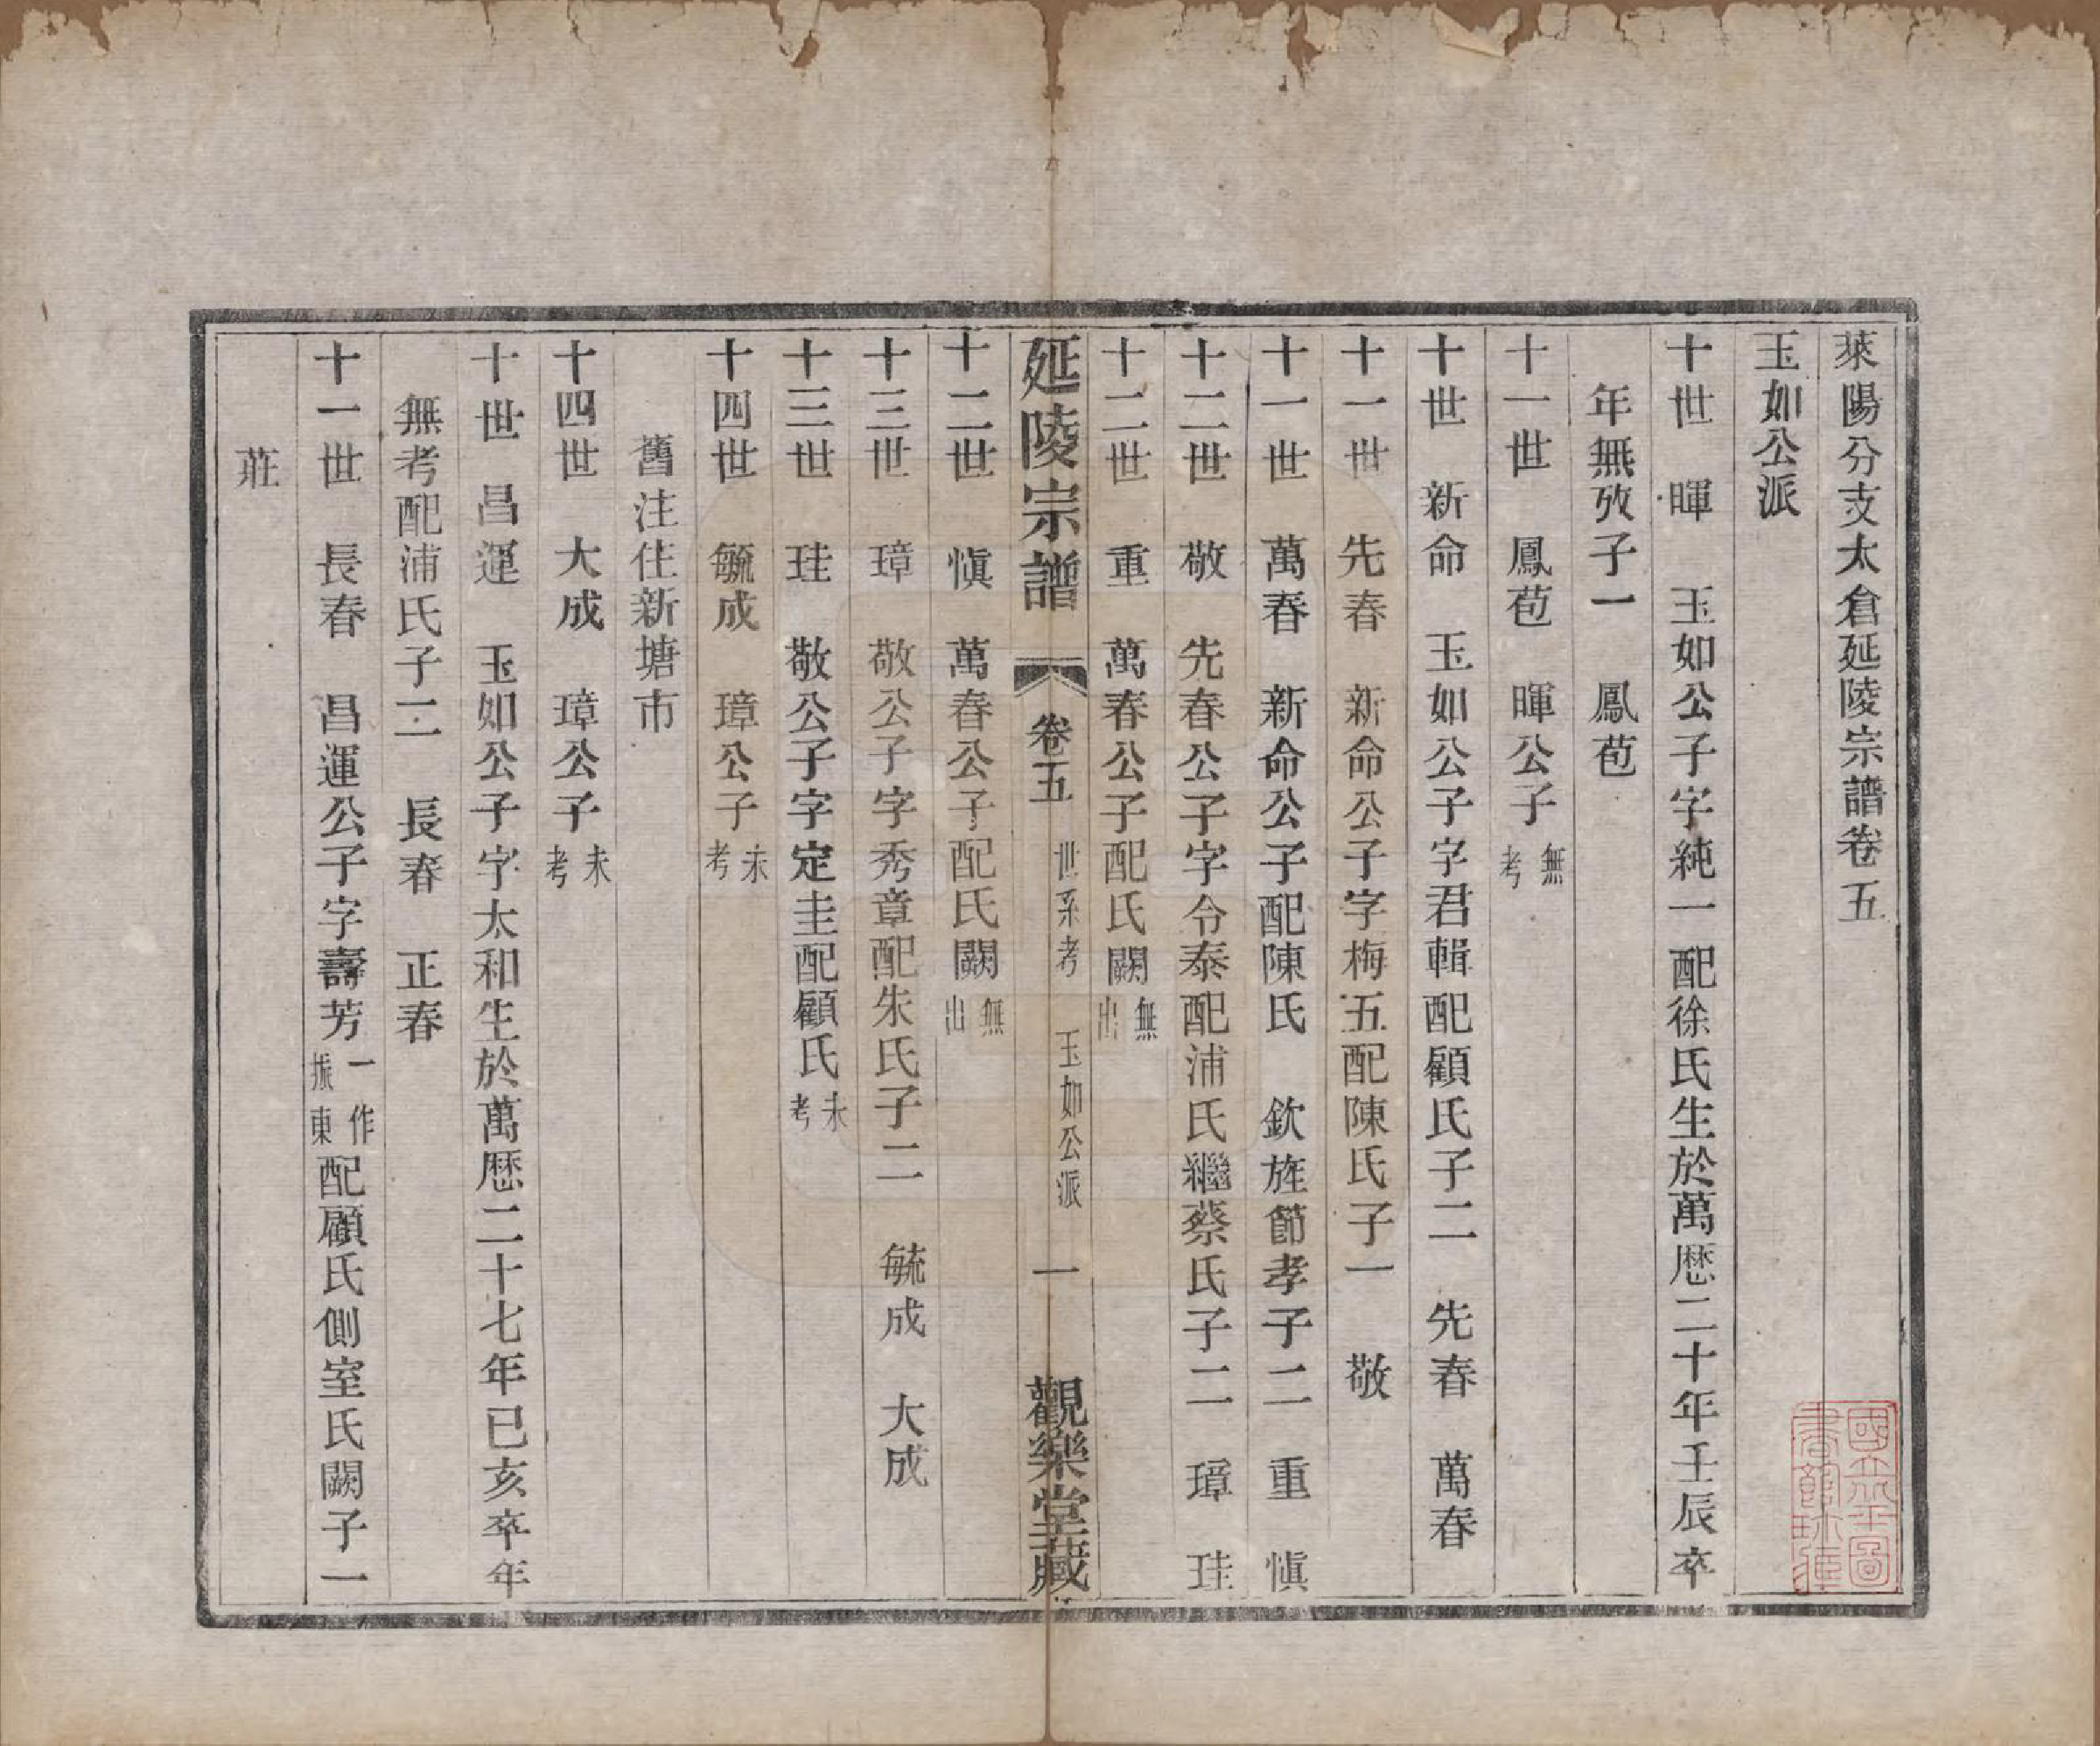 萊陽分支太倉延陵宗譜卷五
玉如公派
十世 暉 玉如公子字純一配徐氏生於萬歴二十年壬辰卒
年無攷子一 鳳苞
十一世 鳳苞 暉公子無考
十世 新命 玉如公子字君輯配顧氏子二 先春 萬春
十一世 先春 新命公子字梅五配陳氏子一 敬
十一世 萬春 新命公子配陳氏 欽旌節孝子二 重 愼
十二世 敬 先春公子字令泰配浦氏繼蔡氏子二 璋 珪
十二世 重 萬春公子配氏闕無出
延陵宗譜 卷五 世系考 玉如公派 一 觀樂堂藏
十二世 愼 萬春公子配氏闕無出
十三世 璋 敬公子字秀章配朱氏子二 毓成 大成
十三世 珪 敬公子字定圭配顧氏未考
十四世 毓成 璋公子未考
舊注住新塘市
十四世 大成 璋公子未考
十世 昌運 玉如公子字太和生於萬歴二十七年已亥卒年
無考配浦氏子二 長春 正春
十一世 長春 昌運公子字壽芳一作振東配顧氏側室氏闕子一
莊
國立北平圖
書館珍藏